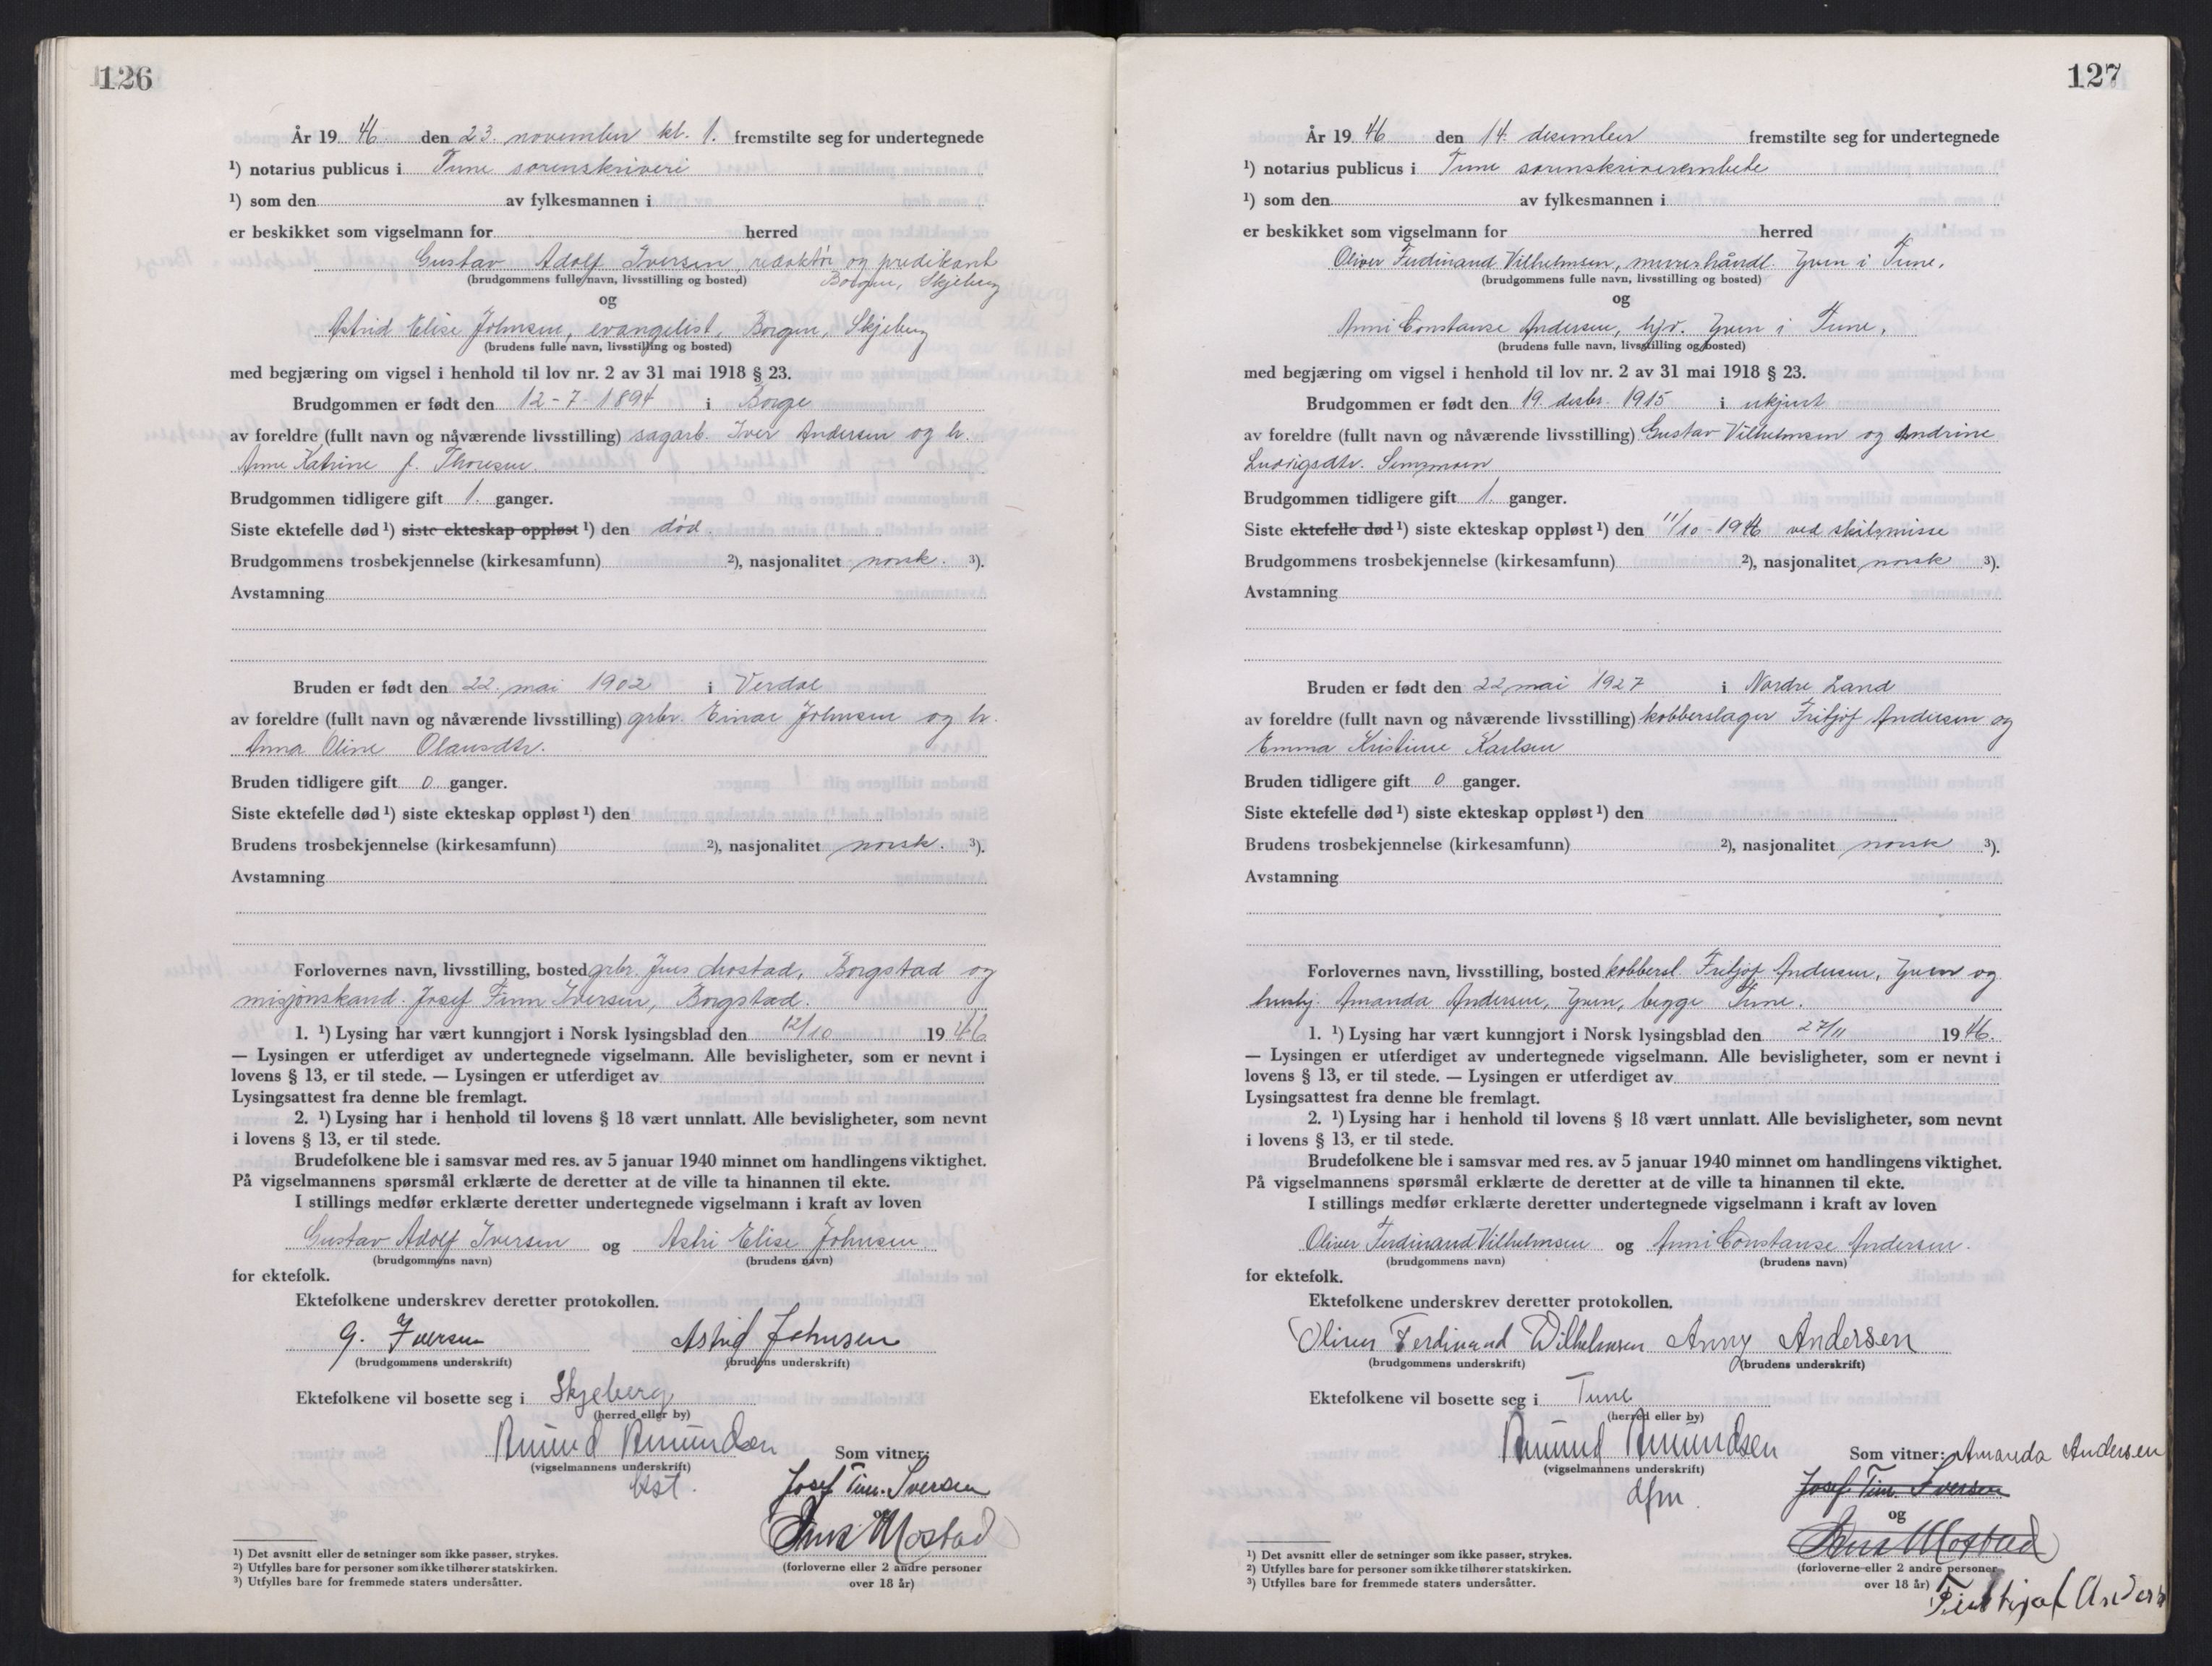 126
År 19 46 den 23. november kl. 1. fremstilte seg for undertegnede
¹) notarius publicus i Tune sorenskriveri
¹) som den av fylkesmannen i
er beskikket som vigselmann for herred
Gustav Adolf Iversen, redaktør og predikant
(brudgommens fulle navn, livsstilling og bosted) Borgen, Skjeberg
og
Astrid Elise Johnsen, evangelist, Borgen, Skjeberg
(brudens fulle navn, livsstilling og bosted)
med begjæring om vigsel i henhold til lov nr. 2 av 31 mai 1918 § 23.
Brudgommen er født den 12-7-1894 i Borge
av foreldre (fullt navn og nåværende livsstilling) sagarb. Iver Andersen og h.
Anne Katrine f. Thoresen.
Brudgommen tidligere gift 1. ganger.
Siste ektefelle død ¹) siste ekteskap oppløst ¹) den død.
Brudgommens trosbekjennelse (kirkesamfunn) ²), nasjonalitet norsk. ³).
Avstamning
Bruden er født den 22. mai 1902 i Verdal
av foreldre (fullt navn og nåværende livsstilling) grbr. Einar Johnsen og h.
Anna Oline Olausdtr.
Bruden tidligere gift 0 ganger.
Siste ektefelle død ¹) siste ekteskap oppløst ¹) den
Brudens trosbekjennelse (kirkesamfunn) ²), nasjonalitet norsk. ³).
Avstamning
Forlovernes navn, livsstilling, bosted grbr. Jens Mostad, Borgstad og
misjonskand. Josef Finn Iversen, Borgstad.
1. ¹) Lysing har vært kunngjort i Norsk lysingsblad den 12/10 19 46
— Lysingen er utferdiget av undertegnede vigselmann. Alle bevisligheter, som er nevnt i
lovens § 13, er til stede. — Lysingen er utferdiget av
Lysingsattest fra denne ble fremlagt.
2. ¹) Lysing har i henhold til lovens § 18 vært unnlatt. Alle bevisligheter, som nevnt
i lovens § 13, er til stede.
Brudefolkene ble i samsvar med res. av 5 januar 1940 minnet om handlingens viktighet.
På vigselmannens spørsmål erklærte de deretter at de ville ta hinannen til ekte.
I stillings medfør erklærte deretter undertegnede vigselmann i kraft av loven
Gustav Adolf Iversen og Astri Elise Johnsen
(brudgommens navn) (brudens navn)
for ektefolk.
Ektefolkene underskrev deretter protokollen.
G. Iversen Astrid Johnsen
(brudgommens underskrift) (brudens underskrift)
Ektefolkene vil bosette seg i Skjeberg
(herred eller by)
Amund Amundsen Som vitner:
(vigselmannens underskrift)
kst. Josef Finn. Iversen
og
Jens Mostad
(forloverne eller 2 andre personer
over 18 år)
¹) Det avsnitt eller de setninger som ikke passer, strykes.
²) Utfylles bare for personer som ikke tilhører statskirken.
³) Utfylles bare for fremmede staters undersåtter.
127
År 19 46 den 14. desember fremstilte seg for undertegnede
¹) notarius publicus i Tune sorenskriverembete
¹) som den av fylkesmannen i
er beskikket som vigselmann for herred
Oliver Ferdinand Vilhelmsen, murerhåndl. Yven i Tune.
(brudgommens fulle navn, livsstilling og bosted)
og
Anni Constanse Andersen, hjv. Yven i Tune.
(brudens fulle navn, livsstilling og bosted)
med begjæring om vigsel i henhold til lov nr. 2 av 31 mai 1918 § 23.
Brudgommen er født den 19. desbr. 1915 i ukjent
av foreldre (fullt navn og nåværende livsstilling) Gustav Vilhelmsen og Andrine
Ludvigsdtr.
Brudgommen tidligere gift 1. ganger.
Siste ektefelle død ¹) siste ekteskap oppløst ¹) den 11/10-1946 ved skilsmisse
Brudgommens trosbekjennelse (kirkesamfunn) ²), nasjonalitet norsk ³).
Avstamning
Bruden er født den 22 mai 1927 i Nordre Land
av foreldre (fullt navn og nåværende livsstilling) kobberslager Fritjof Andersen og
Emma Kristine Karlsen
Bruden tidligere gift 0 ganger.
Siste ektefelle død ¹) siste ekteskap oppløst ¹) den
Brudens trosbekjennelse (kirkesamfunn) ²), nasjonalitet norsk ³).
Avstamning
Forlovernes navn, livsstilling, bosted kobbersl. Fritjof Andersen, Yven og
hushj. Amanda Andersen, Yven, begge Tune.
1. ¹) Lysing har vært kunngjort i Norsk lysingsblad den 27/11 19 46.
— Lysingen er utferdiget av undertegnede vigselmann. Alle bevisligheter, som er nevnt i
lovens § 13, er til stede. — Lysingen er utferdiget av
Lysingsattest fra denne ble fremlagt.
2. ¹) Lysing har i henhold til lovens § 18 vært unnlatt. Alle bevisligheter, som nevnt
i lovens § 13, er til stede.
Brudefolkene ble i samsvar med res. av 5 januar 1940 minnet om handlingens viktighet.
På vigselmannens spørsmål erklærte de deretter at de ville ta hinannen til ekte.
I stillings medfør erklærte deretter undertegnede vigselmann i kraft av loven
Oliver Ferdinand Vilhelmsen og Anni Constanse Andersen.
(brudgommens navn) (brudens navn)
for ektefolk.
Ektefolkene underskrev deretter protokollen.
Oliver Ferdinand Wilhelmsen Anny Andersen
(brudgommens underskrift) (brudens underskrift)
Ektefolkene vil bosette seg i Tune
(herred eller by)
Amund Amundsen Som vitner: Amanda Andersen
(vigselmannens underskrift)
dfm. Josef Finn. Iversen
og
Jens Mostad
(forloverne eller 2 andre personer
over 18 år)
¹) Det avsnitt eller de setninger som ikke passer, strykes.
²) Utfylles bare for personer som ikke tilhører statskirken.
³) Utfylles bare for fremmede staters undersåtter.